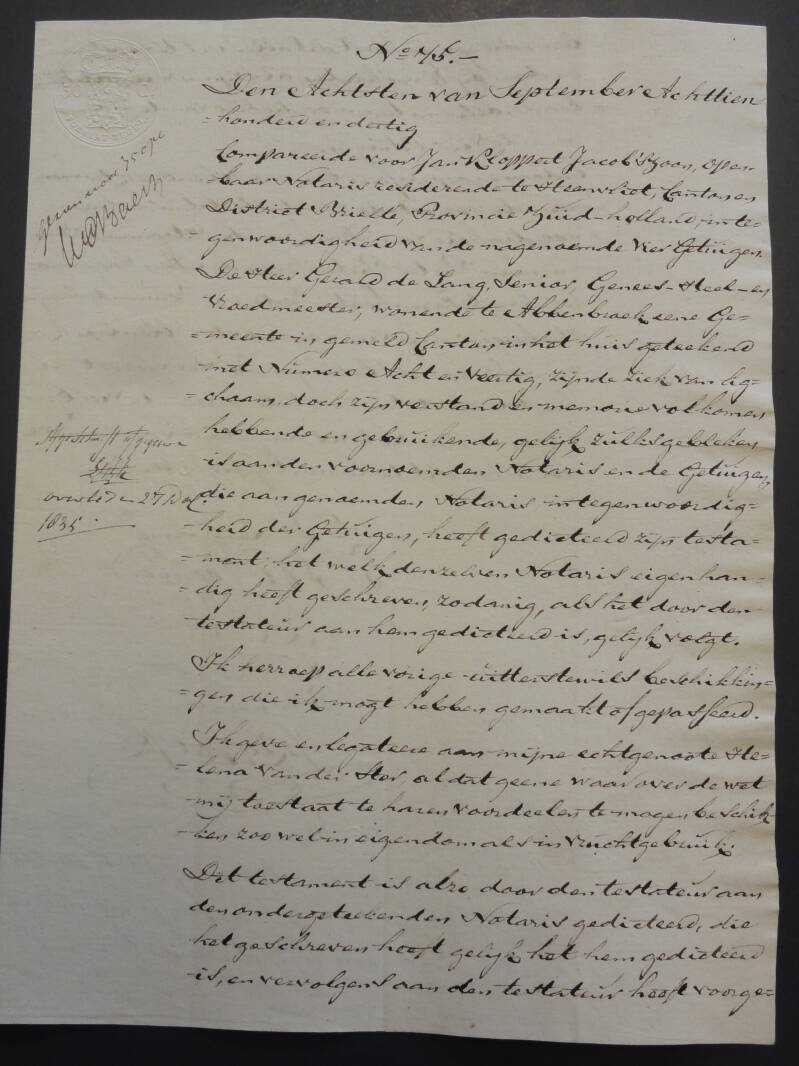 No 75.-
Den Achtsten van September Achttien
=honderd en dertig
Compareerde voor Jan Kloppert Jacob'Szoon, open-
=baar Notaris residerende te Heenvliet, Canton en
District Brielle, Provincie Zuid-holland, in te-
=genwoordigheid van de nagenoemde Vier Getuigen.
De Heer Gerard de Lang, Senior, Genees-Heel-en
Vroedmeester, wonende te Abbenbroek eene Ge-
=meente in gemeld Canton in het huis geteekend
met Numero Acht en Veertig, zijnde ziek van lig-
=chaam doch zijn verstand en memorie volkomen
hebbende en gebruikende, gelijk zulks gebleken
is aan den voornoemden Notaris en de Getuigen,
die aan genoemden Notaris in tegenwoordig-
=heid der Getuigen, heeft gedicteerd zijn testa-
=ment het welk denzelven Notaris eigenhan-
=dig heeft geschreven, zodanig, als het door den
testateur aan hem gedicteerd is, gelijk volgt.
Ik herroep alle vorige uitterste wils beschikkin-
=gen die ik mogt hebben gemaakt of gepasseerd.
Ik geve en legateere aan mijne echtgenoote He-
=lena van der Stor al dat geene waarover de wet
mij toestaat te haren voordeelen te mogen beschik-
=ken zoo wel in eigendom als in vruchtgebruik.
Dit testament is alzo door den testateur aan
den ondergeteekenden Notaris gedicteerd, die
het geschreven heeft gelijk het hem gedicteerd
is, en vervolgens aan den testateur heeft voorge=
voor
Afschrift
overleden 27 Dec.
1835.